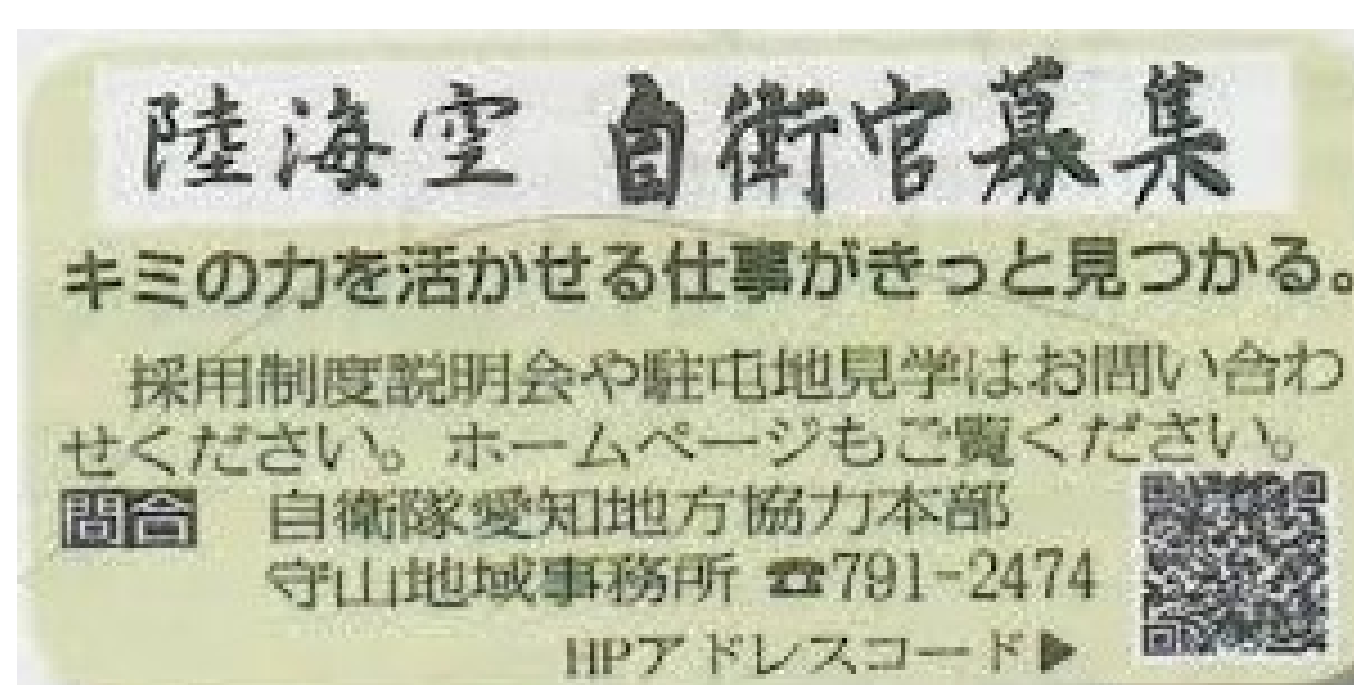 陸海空 自衛官募集
キミの力を活かせる仕事がきっと見つかる。
採用制度説明会や駐屯地見学はお問い合わ
せください。ホームページもご覧ください。
問合 自衛隊愛知地方協力本部
守山地域事務所 ☎791-2474
HPアドレスコード▶